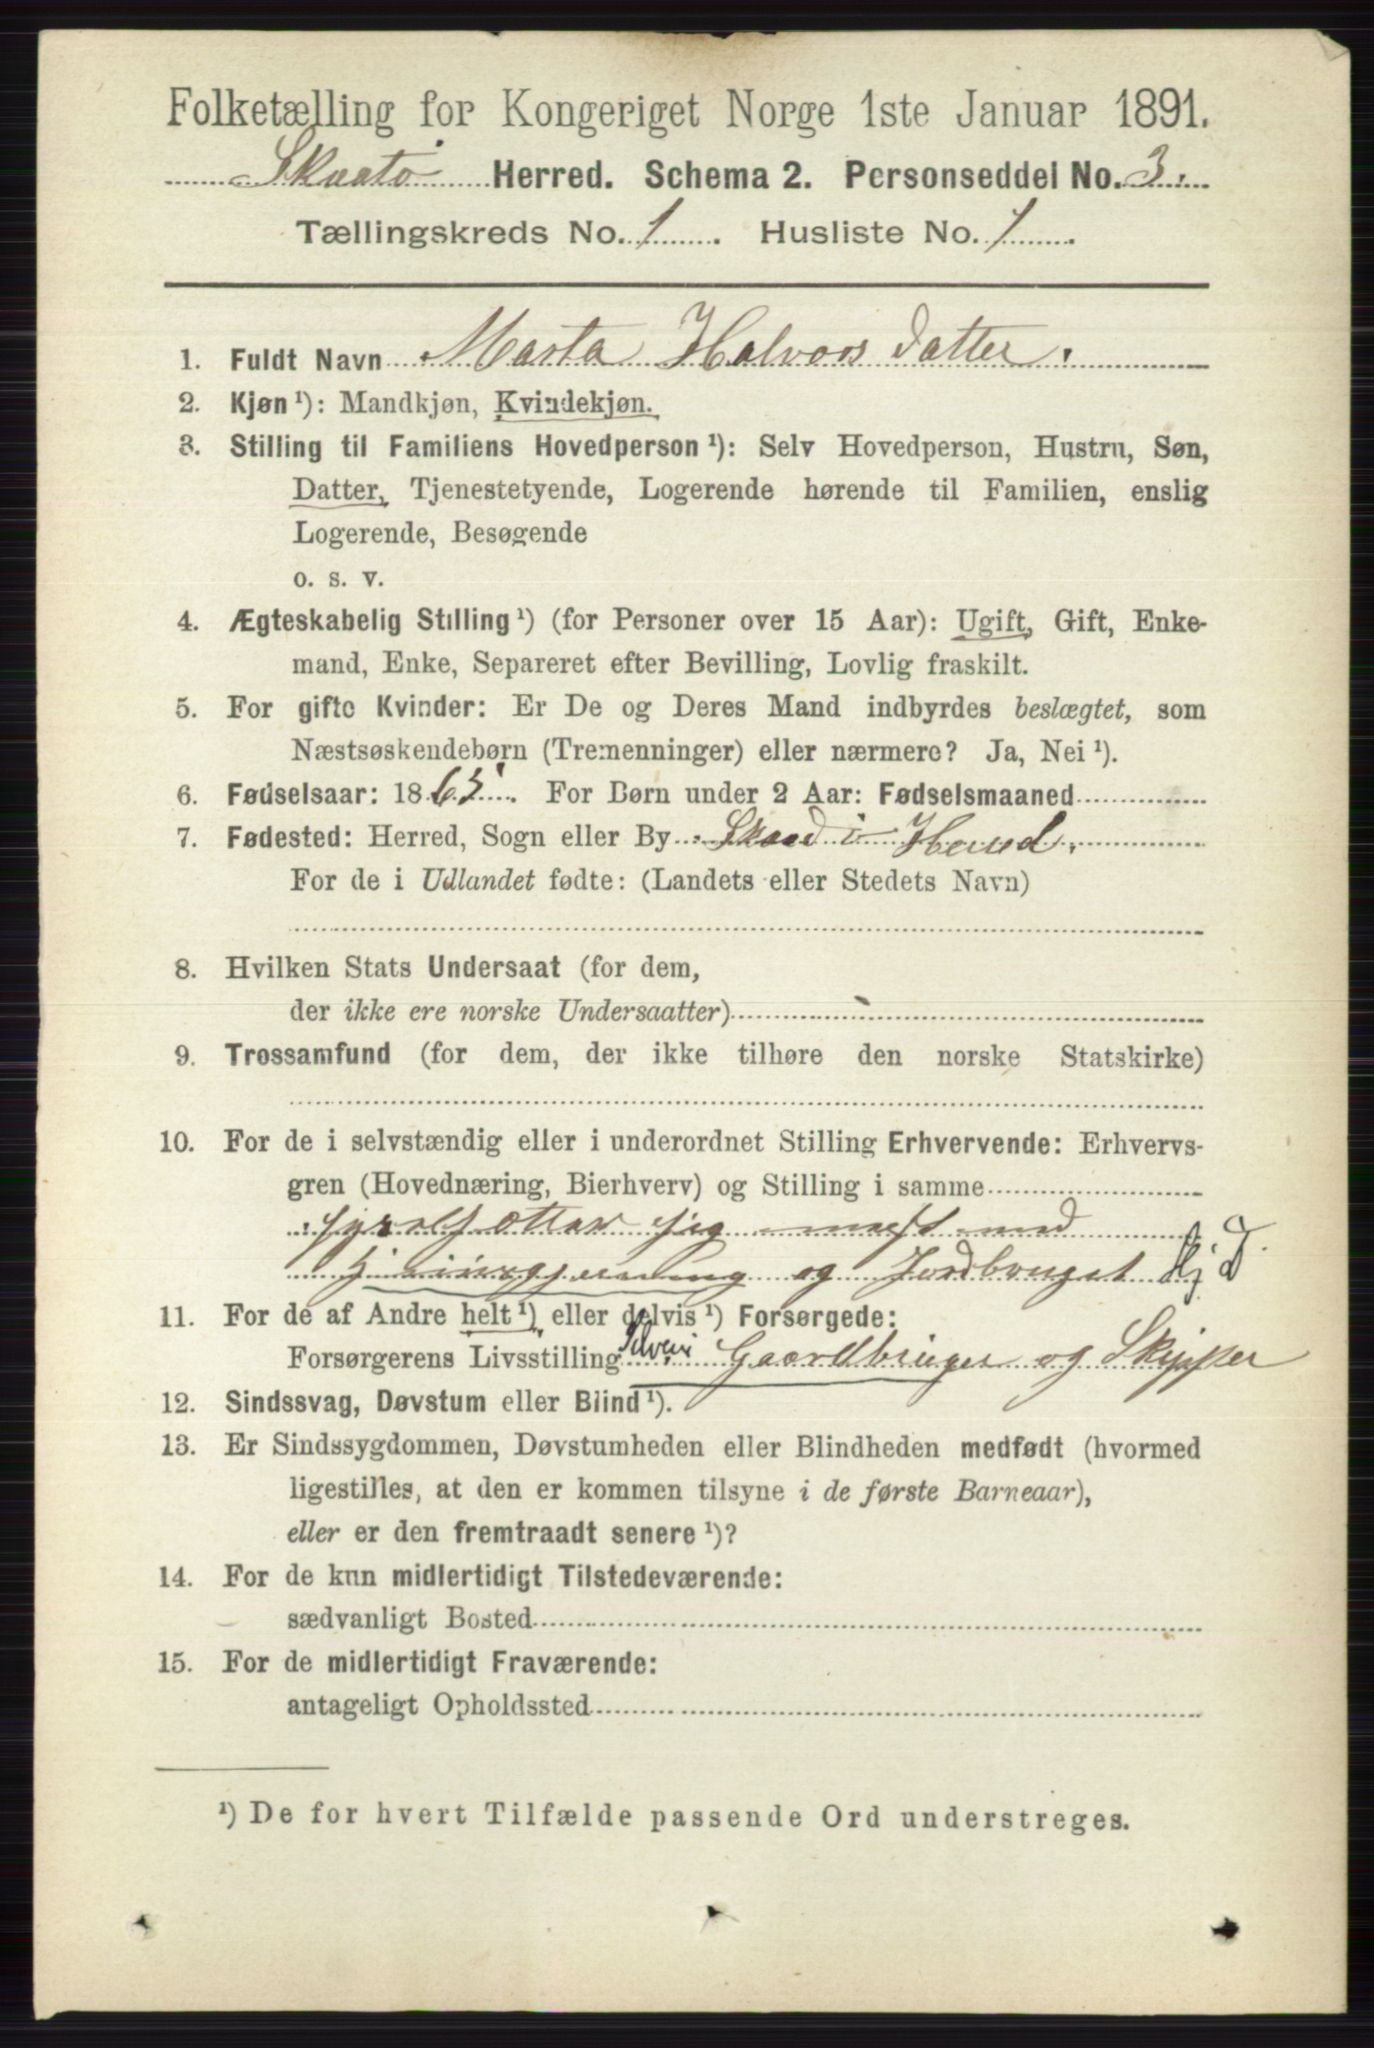 Folketælling for Kongeriget Norge 1ste Januar 1891.
Skaatø Herred. Schema 2. Personseddel No. 3.
Tællingskreds No. 1. Husliste No. 1
1. Fuldt Navn Marta Halvors datter.
2. Kjøn ¹): Mandkjøn, Kvindekjøn.
3. Stilling til Familiens Hovedperson ¹): Selv Hovedperson, Hustru, Søn,
Datter, Tjenestetyende, Logerende hørende til Familien, enslig
Logerende, Besøgende
o. s. v.
4. Ægteskabelig Stilling ¹) (for Personer over 15 Aar): Ugift, Gift, Enke-
mand, Enke, Separeret efter Bevilling, Lovlig fraskilt.
5. For gifte Kvinder: Er De og Deres Mand indbyrdes beslægtet, som
Næstsøskendebørn (Tremenninger) eller nærmere? Ja, Nei ¹).
6. Fødselsaar: 1863. For Børn under 2 Aar: Fødselsmaaned
7. Fødested: Herred, Sogn eller By i Herred.
For de i Udlandet fødte: (Landets eller Stedets Navn)
8. Hvilken Stats Undersaat (for dem,
der ikke ere norske Undersaatter)
9. Trossamfund (for dem, der ikke tilhøre den norske Statskirke)
10. For de i selvstændig eller i underordnet Stilling Erhvervende: Erhvervs-
gren (Hovednæring, Bierhverv) og Stilling i samme
sig mest med
og Jordbruget Hj D
11. For de af Andre helt ¹) eller delvis ¹) Forsørgede:
Forsørgerens Livsstilling Gaardbruger og Skipper
12. Sindssvag, Døvstum eller Blind ¹).
13. Er Sindssygdommen, Døvstumheden eller Blindheden medfødt (hvormed
ligestilles, at den er kommen tilsyne i de første Barneaar),
eller er den fremtraadt senere ¹)?
14. For de kun midlertidigt Tilstedeværende:
sædvanligt Bosted
15. For de midlertidigt Fraværende:
antageligt Opholdssted
¹) De for hvert Tilfælde passende Ord understreges.